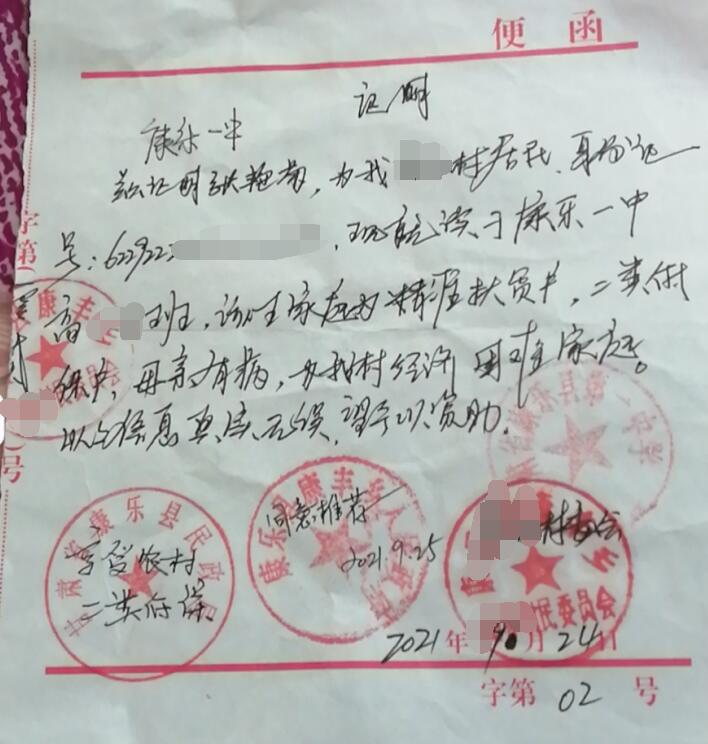 便函
证明
康乐一中
兹证明张艳芳，为我 村居民，身份证
号：622922 ，现就读于康乐一中
高 班，该生家庭为精准扶贫户，二类低
保户，母亲有病，为我村经济困难家庭。
以上信息真实无误，望予以资助。
字第
号
康丰
甘肃省康乐县民政局
享受农村
二类低保
康乐县康丰乡人民政府
同意推荐
2021.9.25
村委会
民委员会
2021年9月24日
字第02号